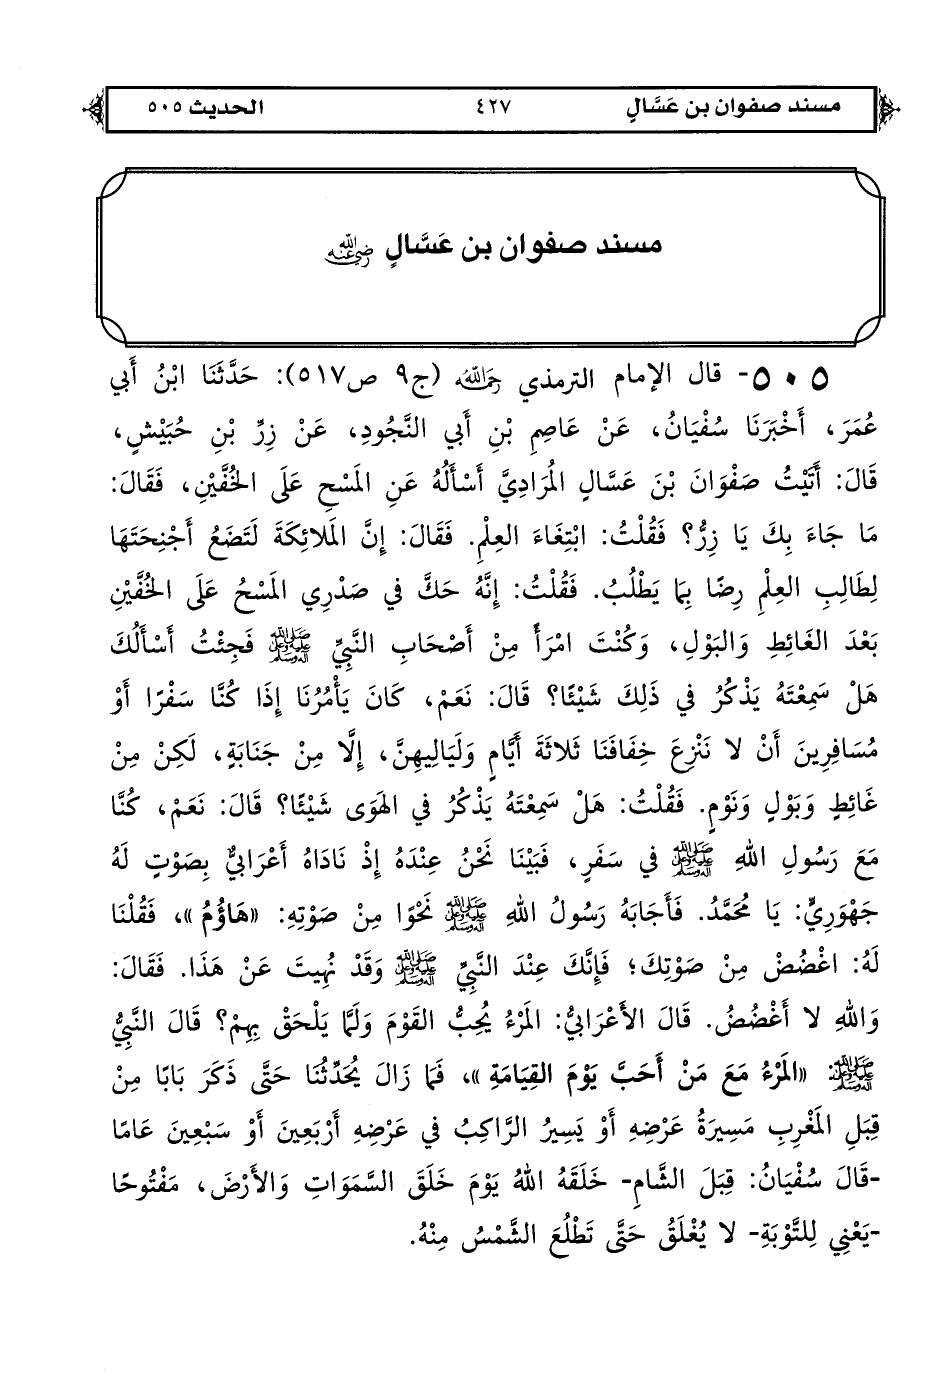 مسند صفوان بن عَسَّالٍ ٤٢٧ الحديث ٥٠٥
مسند صفوان بن عَسَّالٍ رضي الله عنه
٥٠٥- قال الإمام الترمذي رحمه الله (ج٩ ص٥١٧): حَدَّثَنَا ابْنُ أَبي
عُمَرَ، أَخْبَرَنَا سُفْيَانُ، عَنْ عَاصِمِ بْنِ أَبي النَّجُودِ، عَنْ زِرِّ بْنِ حُبَيْشٍ،
قَالَ: أَتَيْتُ صَفْوَانَ بْنَ عَسَّالٍ المُرَادِيَّ أَسْأَلُهُ عَنِ المَسْحِ عَلَى الخُفَّيْنِ، فَقَالَ:
مَا جَاءَ بِكَ يَا زِرُّ؟ فَقُلْتُ: ابْتِغَاءَ العِلْمِ. فَقَالَ: إِنَّ المَلائِكَةَ لَتَضَعُ أَجْنِحَتَهَا
لِطَالِبِ العِلْمِ رِضًا بِمَا يَطْلُبُ. فَقُلْتُ: إِنَّهُ حَكَّ في صَدْرِي المَسْحُ عَلَى الخُفَّيْنِ
بَعْدَ الغَائِطِ وَالبَوْلِ، وَكُنْتَ امْرَأً مِنْ أَصْحَابِ النَّبِيِّ ﷺ فَجِئْتُ أَسْأَلُكَ
هَلْ سَمِعْتَهُ يَذْكُرُ في ذَلِكَ شَيْئًا؟ قَالَ: نَعَمْ، كَانَ يَأْمُرُنَا إِذَا كُنَّا سَفْرًا أَوْ
مُسَافِرِينَ أَنْ لا نَنْزِعَ خِفَافَنَا ثَلاثَةَ أَيَّامٍ وَلَيَالِيهِنَّ، إِلَّا مِنْ جَنَابَةٍ، لَكِنْ مِنْ
غَائِطٍ وَبَوْلٍ وَنَوْمٍ. فَقُلْتُ: هَلْ سَمِعْتَهُ يَذْكُرُ في الهَوَى شَيْئًا؟ قَالَ: نَعَمْ، كُنَّا
مَعَ رَسُولِ اللهِ ﷺ في سَفَرٍ، فَبَيْنَا نَحْنُ عِنْدَهُ إِذْ نَادَاهُ أَعْرَابيٌّ بِصَوْتٍ لَهُ
جَهْوَرِيٍّ: يَا مُحَمَّدُ. فَأَجَابَهُ رَسُولُ اللهِ ﷺ نَحْوًا مِنْ صَوْتِهِ: «هَاؤُمُ»، فَقُلْنَا
لَهُ: اغْضُضْ مِنْ صَوْتِكَ؛ فَإِنَّكَ عِنْدَ النَّبِيِّ ﷺ وَقَدْ نُهِيتَ عَنْ هَذَا. فَقَالَ:
وَاللهِ لا أَغْضُضُ. قَالَ الأَعْرَابيُّ: المَرْءُ يُحِبُّ القَوْمَ وَلَمَّا يَلْحَقْ بِهِمْ؟ قَالَ النَّبِيُّ
ﷺ: «المَرْءُ مَعَ مَنْ أَحَبَّ يَوْمَ القِيَامَةِ»، فَمَا زَالَ يُحَدِّثُنَا حَتَّى ذَكَرَ بَابًا مِنْ
قِبَلِ المَغْرِبِ مَسِيرَةُ عَرْضِهِ أَوْ يَسِيرُ الرَّاكِبُ في عَرْضِهِ أَرْبَعِينَ أَوْ سَبْعِينَ عَامًا
-قَالَ سُفْيَانُ: قِبَلَ الشَّامِ- خَلَقَهُ اللهُ يَوْمَ خَلَقَ السَّمَوَاتِ وَالأَرْضَ، مَفْتُوحًا
-يَعْنِي لِلتَّوْبَةِ- لا يُغْلَقُ حَتَّى تَطْلُعَ الشَّمْسُ مِنْهُ.